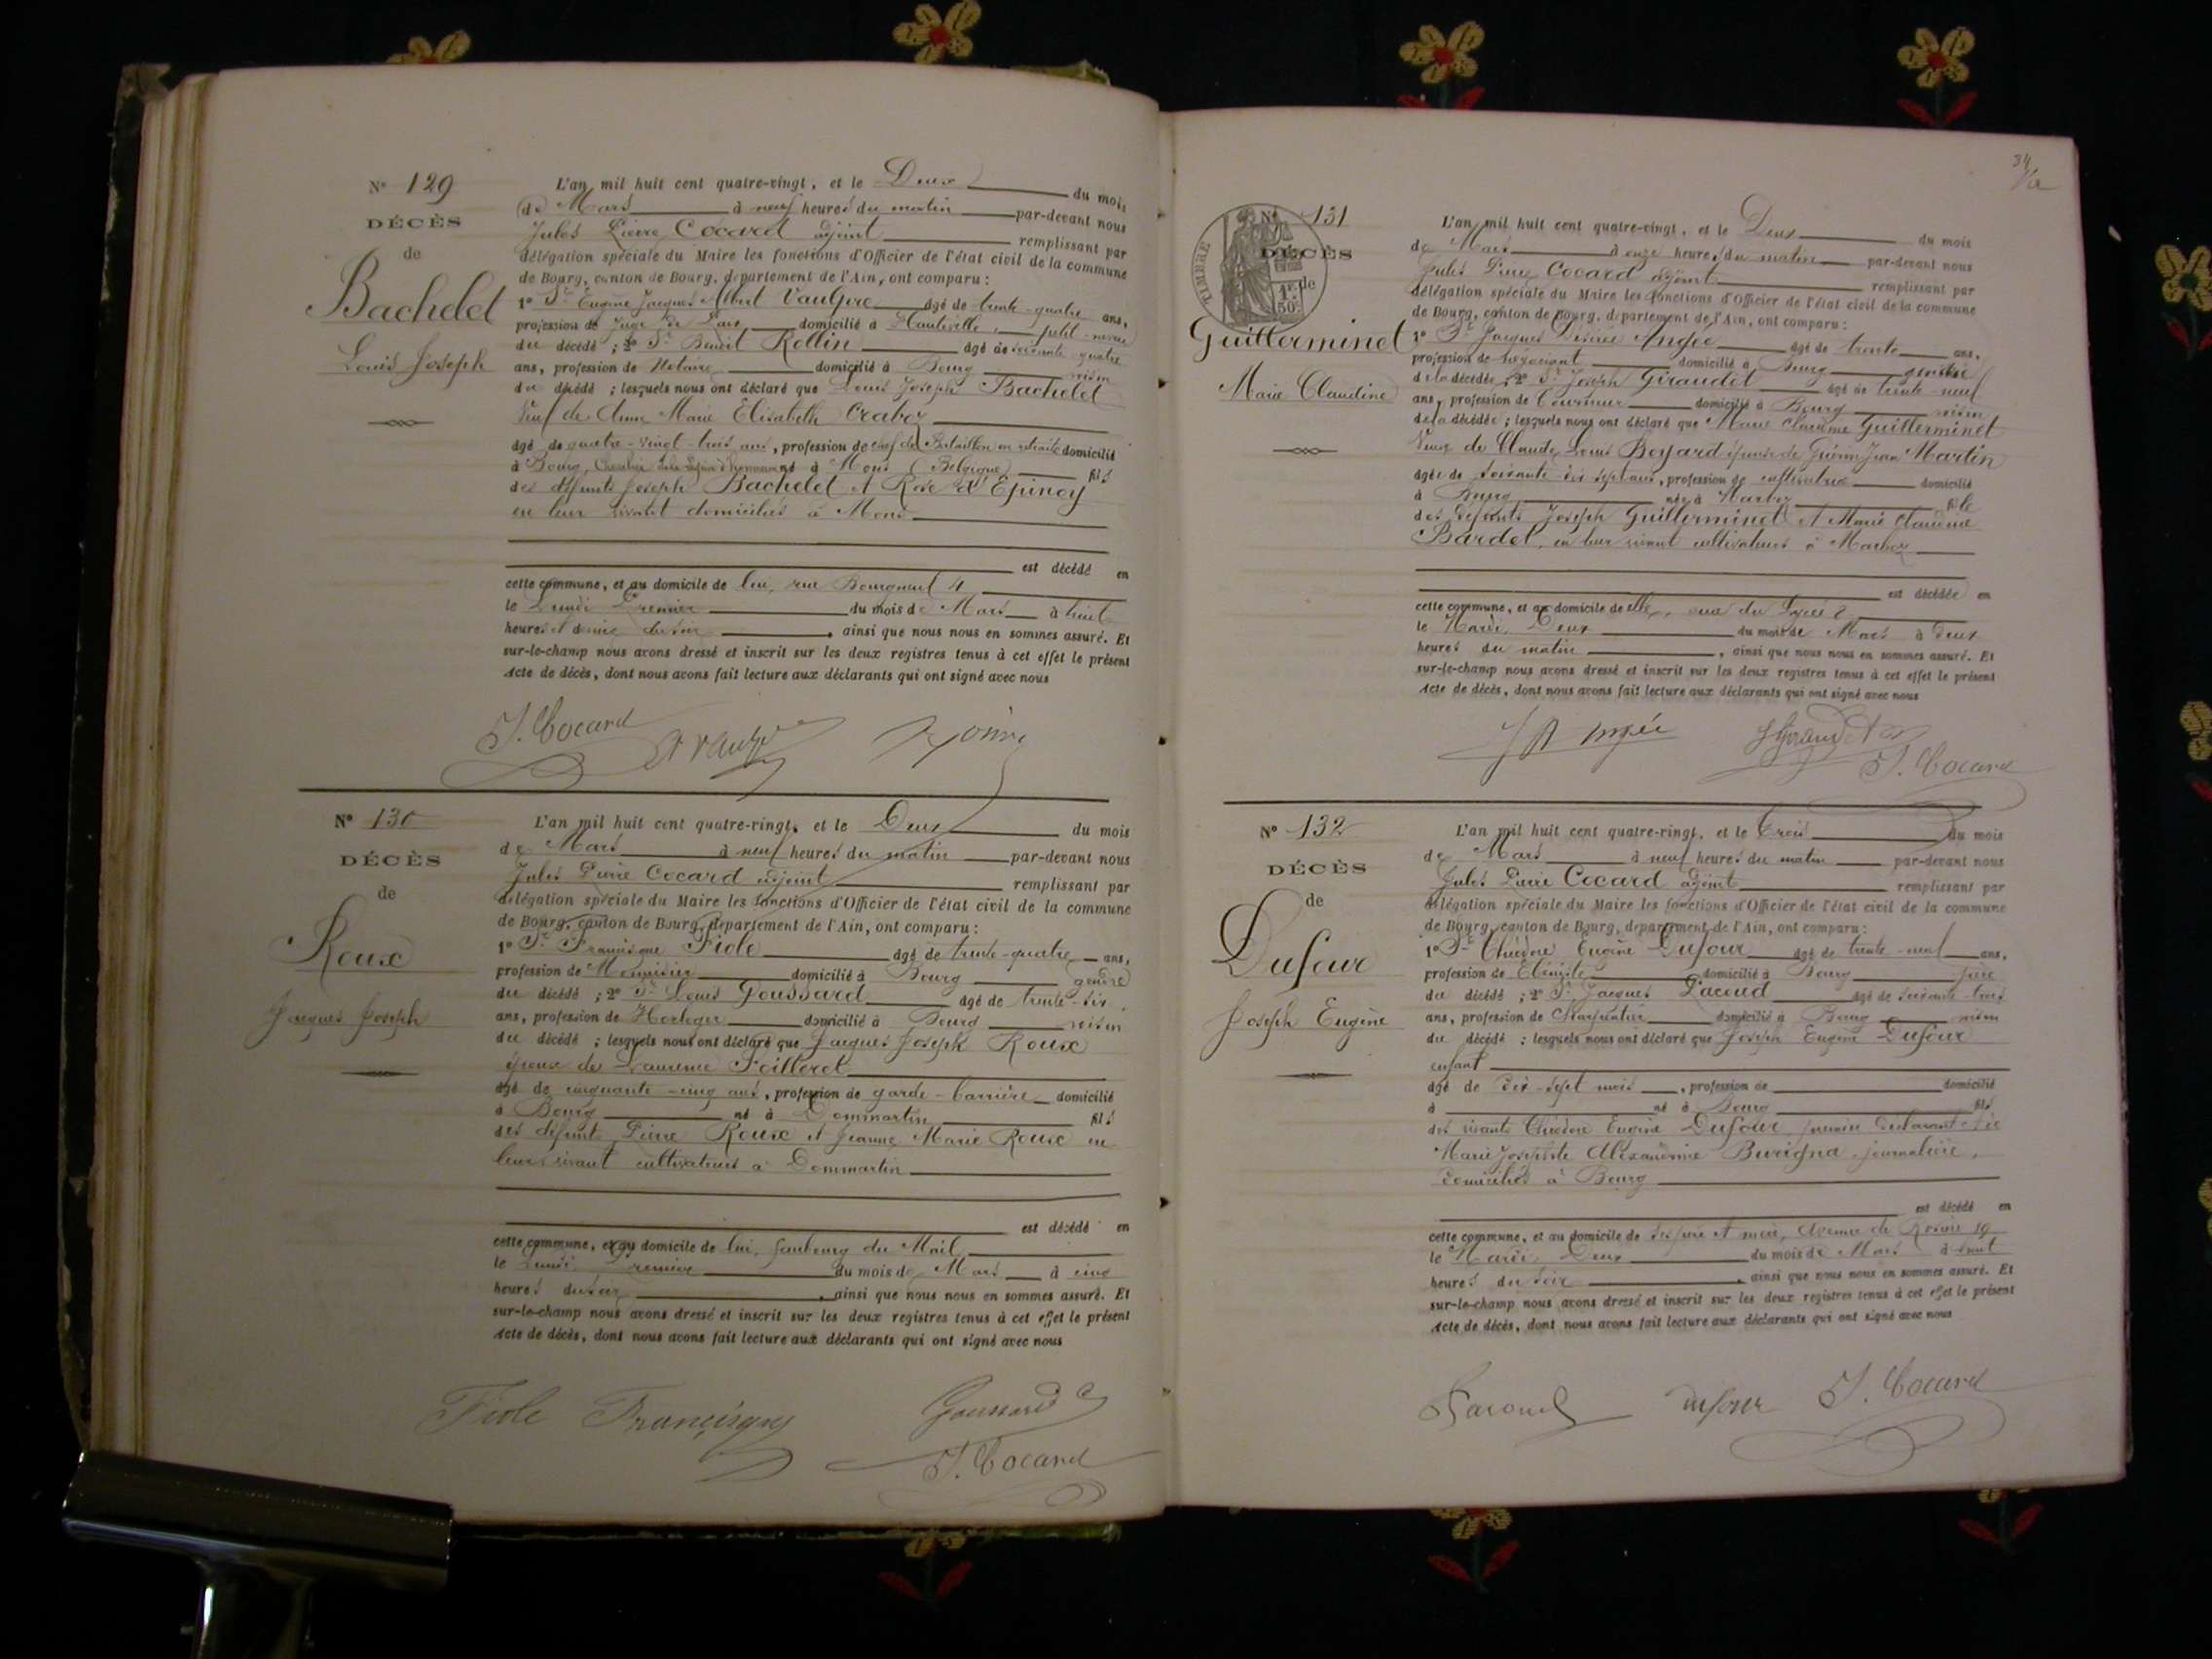 N° 129
DÉCÈS
de
Bachelet
Louis Joseph
L'an mil huit cent quatre-vingt, et le Deux du mois
de Mars à neuf heures du matin par-devant nous
Jules Pierre Cocard adjoint remplissant par
délégation spéciale du Maire les fonctions d'Officier de l'état civil de la commune
de Bourg, canton de Bourg, département de l'Ain, ont comparu :
1° Sr Eugène Jacques Albert âgé de trente-quatre ans,
profession de Juge de Paix domicilié à Hauteville, petit-neveu
du décédé ; 2° Sr Benoit Rollin âgé de soixante quatre
ans, profession de Notaire domicilié à Bourg voisin
du décédé ; lesquels nous ont déclaré que Louis Joseph Bachelet
Veuf de Anne Marie Elisabeth
âgé de quatre-vingt-trois ans, profession de chef de Bataillon en retraite domicilié
à Bourg, Chevalier de la Légion d'honneur né à Mons (Belgique) fils
des défunts Joseph Bachelet et Rose d'Epinoy
en leur vivant domiciliés à Mons
est décédé en
cette commune, et au domicile de lui, rue Bourgneuf 4
le Lundi Premier du mois de Mars à huit
heures et demie du soir, ainsi que nous nous en sommes assuré. Et
sur-le-champ nous avons dressé et inscrit sur les deux registres tenus à cet effet le présent
Acte de décès, dont nous avons fait lecture aux déclarants qui ont signé avec nous
J. Cocard
N° 130
DÉCÈS
de
Roux
Jacques Joseph
L'an mil huit cent quatre-vingt, et le Deux du mois
de Mars à neuf heures du matin par-devant nous
Jules Pierre Cocard adjoint remplissant par
délégation spéciale du Maire les fonctions d'Officier de l'état civil de la commune
de Bourg, canton de Bourg, département de l'Ain, ont comparu :
1° Sr Françisque Fiole âgé de trente-quatre ans,
profession de Menuisier domicilié à Bourg gendre
du décédé ; 2° Sr Louis Goussard âgé de trente-six
ans, profession de Horloger domicilié à Bourg voisin
du décédé ; lesquels nous ont déclaré que Jacques Joseph Roux
époux de Laurence Foilleret
âgé de cinquante-cinq ans, profession de garde-barrière domicilié
à Bourg né à Dommartin fils
des défunts Pierre Roux et Jeanne Marie Roux en
leur vivant cultivateurs à Dommartin
est décédé en
cette commune, et au domicile de lui, faubourg du Mail
le Lundi Premier du mois de Mars à cinq
heures du soir, ainsi que nous nous en sommes assuré. Et
sur-le-champ nous avons dressé et inscrit sur les deux registres tenus à cet effet le présent
Acte de décès, dont nous avons fait lecture aux déclarants qui ont signé avec nous
Fiole Françisque Goussard
J. Cocard
N° 131
DÉCÈS
de
TIMBRE
1F
50c
Guillerminet
Marie Claudine
L'an mil huit cent quatre-vingt, et le Deux du mois
de Mars à onze heures du matin par-devant nous
Jules Pierre Cocard adjoint remplissant par
délégation spéciale du Maire les fonctions d'Officier de l'état civil de la commune
de Bourg, canton de Bourg, département de l'Ain, ont comparu :
1° Sr Jacques Désiré Angée âgé de trente ans,
profession de Négociant domicilié à Bourg gendre
de la décédée ; 2° Sr Joseph Giraudet âgé de trente-neuf
ans, profession de Tourneur domicilié à Bourg voisin
de la décédée ; lesquels nous ont déclaré que Marie Claudine Guillerminet
Veuve de Claude Louis Boyard épouse de Jean Martin
âgée de soixante dix sept ans, profession de cultivatrice domicilié
à Bourg née à Marboz fille
des défunts Joseph Guillerminet et Marie Claudine
Bardet, en leur vivant cultivateurs à Marboz
est décédée en
cette commune, et au domicile de elle, rue du Lycée 2
le Mardi Deux du mois de Mars à deux
heures du matin, ainsi que nous nous en sommes assuré. Et
sur-le-champ nous avons dressé et inscrit sur les deux registres tenus à cet effet le présent
Acte de décès, dont nous avons fait lecture aux déclarants qui ont signé avec nous
Angée Giraudet
J. Cocard
N° 132
DÉCÈS
de
Dufour
Joseph Eugène
L'an mil huit cent quatre-vingt, et le Trois du mois
de Mars à neuf heures du matin par-devant nous
Jules Pierre Cocard adjoint remplissant par
délégation spéciale du Maire les fonctions d'Officier de l'état civil de la commune
de Bourg, canton de Bourg, département de l'Ain, ont comparu :
1° Sr Théodore Eugène Dufour âgé de trente-neuf ans,
profession de Ebéniste domicilié à Bourg père
du décédé ; 2° Sr Jacques Pacoud âgé de soixante-trois
ans, profession de Charpentier domicilié à Bourg voisin
du décédé ; lesquels nous ont déclaré que Joseph Eugène Dufour
enfant
âgé de dix-sept mois, profession de domicilié
à né à Bourg fils
des vivants Théodore Eugène Dufour, premier déclarant et de
Marie Josephte Alexandrine journalière,
domiciliés à Bourg
est décédé en
cette commune, et au domicile de ses père et mère, Avenue de 19
le Mardi Deux du mois de Mars à huit
heures du soir, ainsi que nous nous en sommes assuré. Et
sur-le-champ nous avons dressé et inscrit sur les deux registres tenus à cet effet le présent
Acte de décès, dont nous avons fait lecture aux déclarants qui ont signé avec nous
Pacoud Dufour J. Cocard